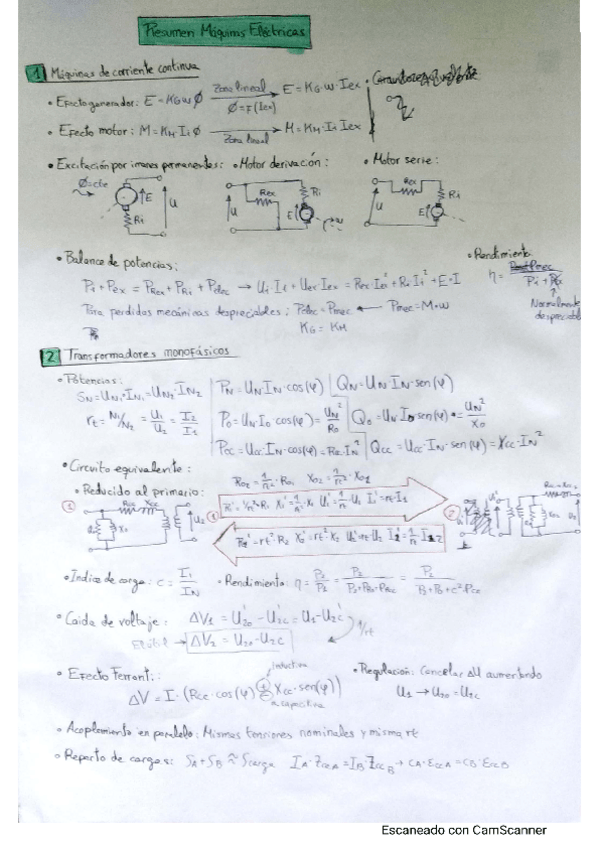 Resumen Máquinas Eléctricas
1 Máquinas de corriente continua
• Efecto generador: E = KG w Ø Zona lineal Ø = F(Iex) E = KG·w·Iex
• Efecto motor: M = KM Ii Ø Zona lineal M = KM Ii Iex
• Excitación por imanes permanentes: • Motor derivación: • Motor serie:
Ø=cte E Ri U
U Rex Ri E w
U Rex Ri E
• Balance de potencias:
Pi + Pex = PRex + PRi + Pelec → Ui·Ii + Uex Iex = Rex Iex² + Ri Ii² + E·I
Para perdidas mecánicas despreciables: Pelec = Pmec ← Pmec = M·w
KG = KM
• Rendimiento:
η = Pmec / Pi + Pex
Normalmente
despreciable
2 Transformadores monofásicos
• Potencias:
SN = UN1·IN1 = UN2·IN2
rt = N1/N2 = U1/U2 = I2/I1
PN = UN IN·cos(φ) QN = UN IN·sen(φ)
P0 = UN I0 cos(φ) = UN²/R0 Q0 = UN I0 sen(φ) = UN²/X0
Pcc = Ucc·IN·cos(φ) = Rcc IN² Qcc = Ucc·IN·sen(φ) = Xcc·IN²
• Circuito equivalente:
• Reducido al primario:
• Indice de carga: c = I1/IN • Rendimiento: η = P2/P1 = P2/P2+PFe+PCu = P2/P2+P0+c²·Pcc
• Caida de voltaje: ΔV1 = U'20 - U'2c = U1 - U'2c
1/rt
ΔV2 = U20 - U2c
• Efecto Ferranti:
inductiva
ΔV = I·(Rcc·cos(φ) ± Xcc·sen(φ))
capacitiva
• Regulación: Cancelar ΔU aumentando
U1 → U20 = U2c
• Acoplamiento en paralelo: Mismas tensiones nominales y misma rt
• Reparto de cargas: SA + SB ≈ Scarga IA·ZccA = IB·ZccB → CA·εccA = CB·εccB
Escaneado con CamScanner